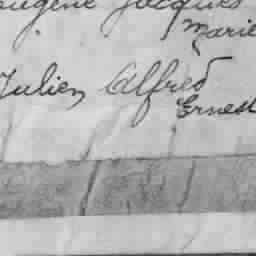 Eugène Jacques
Marie
Julien Alfred
Ernest